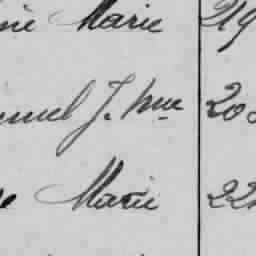 ne Marie 219
muel J. Mme 20
e Marie 22